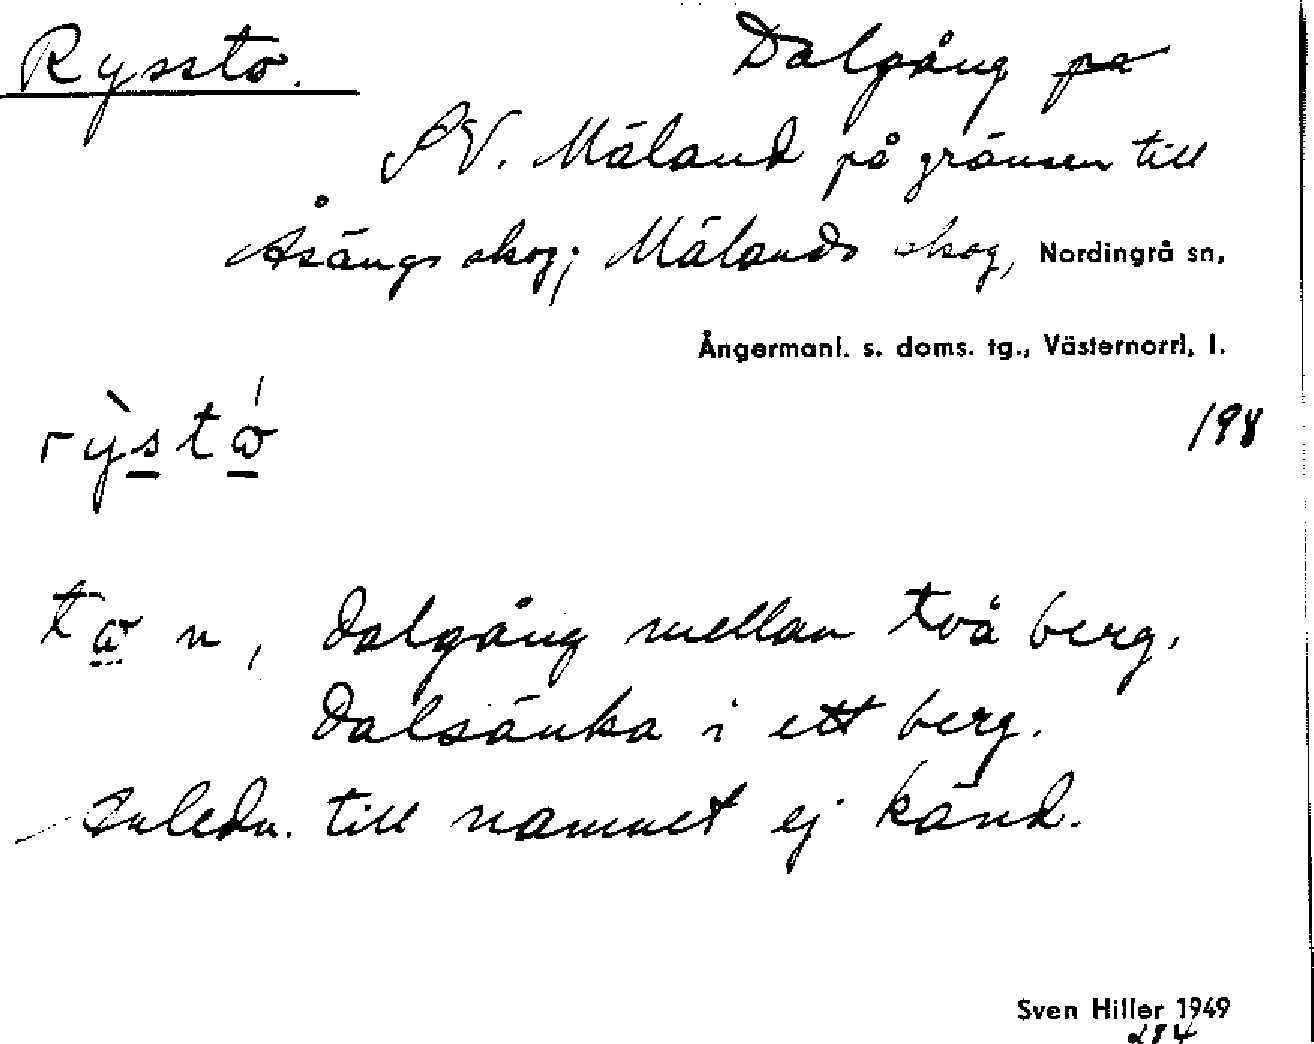 Ryssto. Dalgång på
SV. Mäland på gränsen till
Åsängs skog; Mälands skog, Nordingrå sn,
Ångermanl. s. doms. tg., Västernorrl. l.
198
n, dalgång mellan två berg.
Dalsänka i ett berg.
Anledn. till namnet ej känd.
Sven Hiller 1949
284